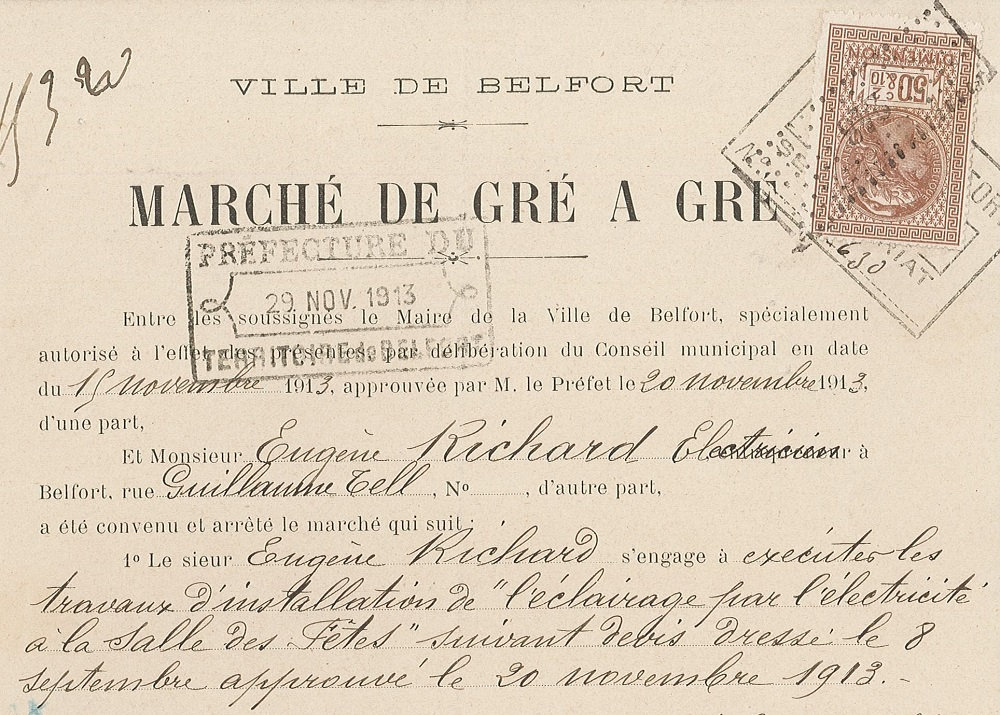 VILLE DE BELFORT
MARCHÉ DE GRÉ A GRÉ
DIMENSION
50c
2
& 10
PRÉFECTURE DU
29 NOV. 1913
TERRITOIRE de BELFORT
Entre les soussignés le Maire de la Ville de Belfort, spécialement
autorisé à l'effet des présentes, par délibération du Conseil municipal en date
du 15 novembre 1913, approuvée par M. le Préfet le 20 novembre 1913,
d'une part,
Et Monsieur Eugène Richard Electricien à
Belfort, rue Guillaume Tell, No , d'autre part,
a été convenu et arrêté le marché qui suit :
1o Le sieur Eugène Richard s'engage à exécuter les
travaux d'installation de "l'éclairage par l'électricité
à la Salle des Fêtes" suivant devis dressé le 8
septembre approuvé le 20 novembre 1913.-